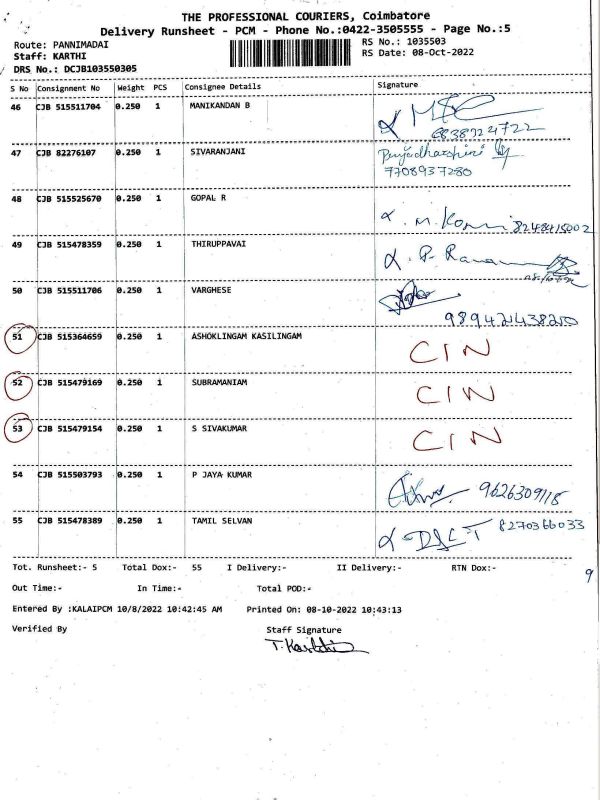 THE PROFESSIONAL COURIERS, Coimbatore
Delivery Runsheet - PCM - Phone No.:0422-3505555 - Page No.:5
Route: PANNIMADAI
Staff: KARTHI
DRS No.: DCJB103550305
RS No.: 1035503
RS Date: 08-Oct-2022
S No Consignment No Weight PCS Consignee Details Signature
46 CJB 515511704 0.250 1 MANIKANDAN B
6838724722
47 CJB 82276107 0.250 1 SIVARANJANI
7708937280
48 CJB 515525670 0.250 1 GOPAL R
8248415002
49 CJB 515478359 0.250 1 THIRUPPAVAI
50 CJB 515511706 0.250 1 VARGHESE
51 CJB 515364659 0.250 1 ASHOKLINGAM KASILINGAM CIN
52 CJB 515479169 0.250 1 SUBRAMANIAM CIN
53 CJB 515479154 0.250 1 S SIVAKUMAR CIN
54 CJB 515503793 0.250 1 P JAYA KUMAR 9626309118
55 CJB 515478389 0.250 1 TAMIL SELVAN 8270366033
Tot. Runsheet:- 5 Total Dox:- 55 I Delivery:- II Delivery:- RTN Dox:-
9
Out Time:- In Time:- Total POD:-
Entered By :KALAIPCM 10/8/2022 10:42:45 AM Printed On: 08-10-2022 10:43:13
Verified By Staff Signature